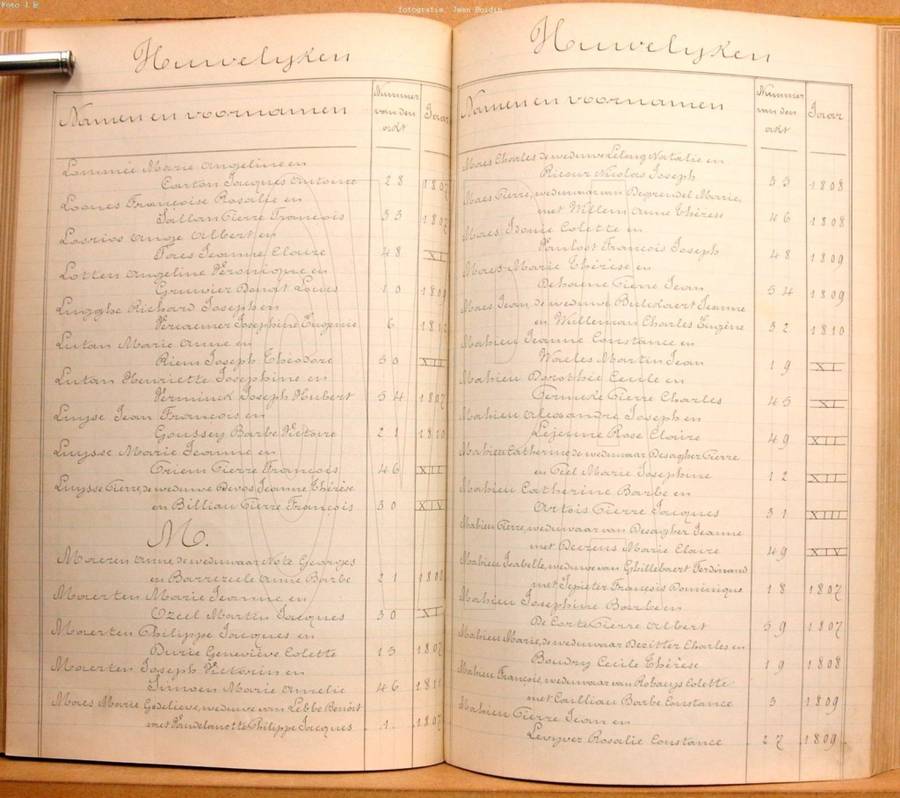 Foto J B
fotografie, Jean Boidin
Huwelyken
Namen en voornamen
Nummer van den akt
Jaar
Lammie Marie Angeline en
Carton Jacques Antoine 28 1807
Looues Françoise Rosalie en
Taillan Pierre François 33 1807
Losrios Ange Albert en
Fores Jeanne Claire 48 XI
Lotten Angeline Véronique en
Gruwier Benoit Louis 10 1809
Lingghe Richard Joseph en
Joséphine Eugenie 6
Lutan Marie Anne en
Riem Joseph Théodore 50 XII
Lutan Henriette Josephine en
Verminck Joseph Hubert 54 1807
Luyse Jean François en
Goussey Barbe Victoire 21 1810
Luysse Marie Jeanne en
Criem Pierre François 46 XII
Luysse Pierre, de weduwe Devos Jeanne Thérèse
en Billiau Pierre François 30 XIV
M.
Maeren Anne de weduwaar Georges
en Barrezeele Anne Barbe 21
Maerten Marie Jeanne en
Ozeel Martin Jacques 30 XI
Maerten Philippe Jacques en
Durie Geneviève Colette 13 1807
Maerten Joseph Victorin en
Simoen Marie Amelie 46
Maes Marie Godelieve, weduwe van Lebbe Benoit
met Vandelanotte Philippe Jacques 1 1807
Huwelyken
Namen en voornamen
Nummer van den akt
Jaar
Maes Charles de weduwe Natalie en
Nicolas Joseph 33 1808
Maes Pierre, weduwaar van Degrendel Marie,
met Willem Anne Thérèse 46 1808
Maes Colette en
Vanloot François Joseph 48 1809
Maes Marie Thérèse en
Dehaene Pierre Jean 54 1809
Maes Jean, de weduwe Bulckaert Jeanne
en Willeman Charles Eugène 32 1810
Mahieu Jeanne Constance en
Waeles Martin Jean 19 XI
Mahieu Dorothée Cecile en
Pierre Charles 45 XI
Mahieu Alexandre Joseph en
Lejeune Rose Claire 49 XII
Mahieu Catherine, de weduwaar Desagher Pierre
en Marie Josephine 12 XII
Mahieu Catherine Barbe en
Artois Pierre Jacques 31 XIII
Mahieu Pierre, weduwaar van Desagher Jeanne
met Marie Claire 49 XIV
Mahieu Isabelle, weduwe van Ghillebaert Ferdinand
met François Dominique 18 1807
Mahieu Josephine Barbe en
De Corte Pierre Albert 59 1807
Mahieu Marie, de weduwaar Dezitter Charles en
Boudry Cecile Thérèse 19 1808
Mahieu François, weduwaar van Robaeys Colette
met Cailliau Barbe Constance 3 1809
Mahieu Pierre Jean en
Lewyver Rosalie Constance 27 1809